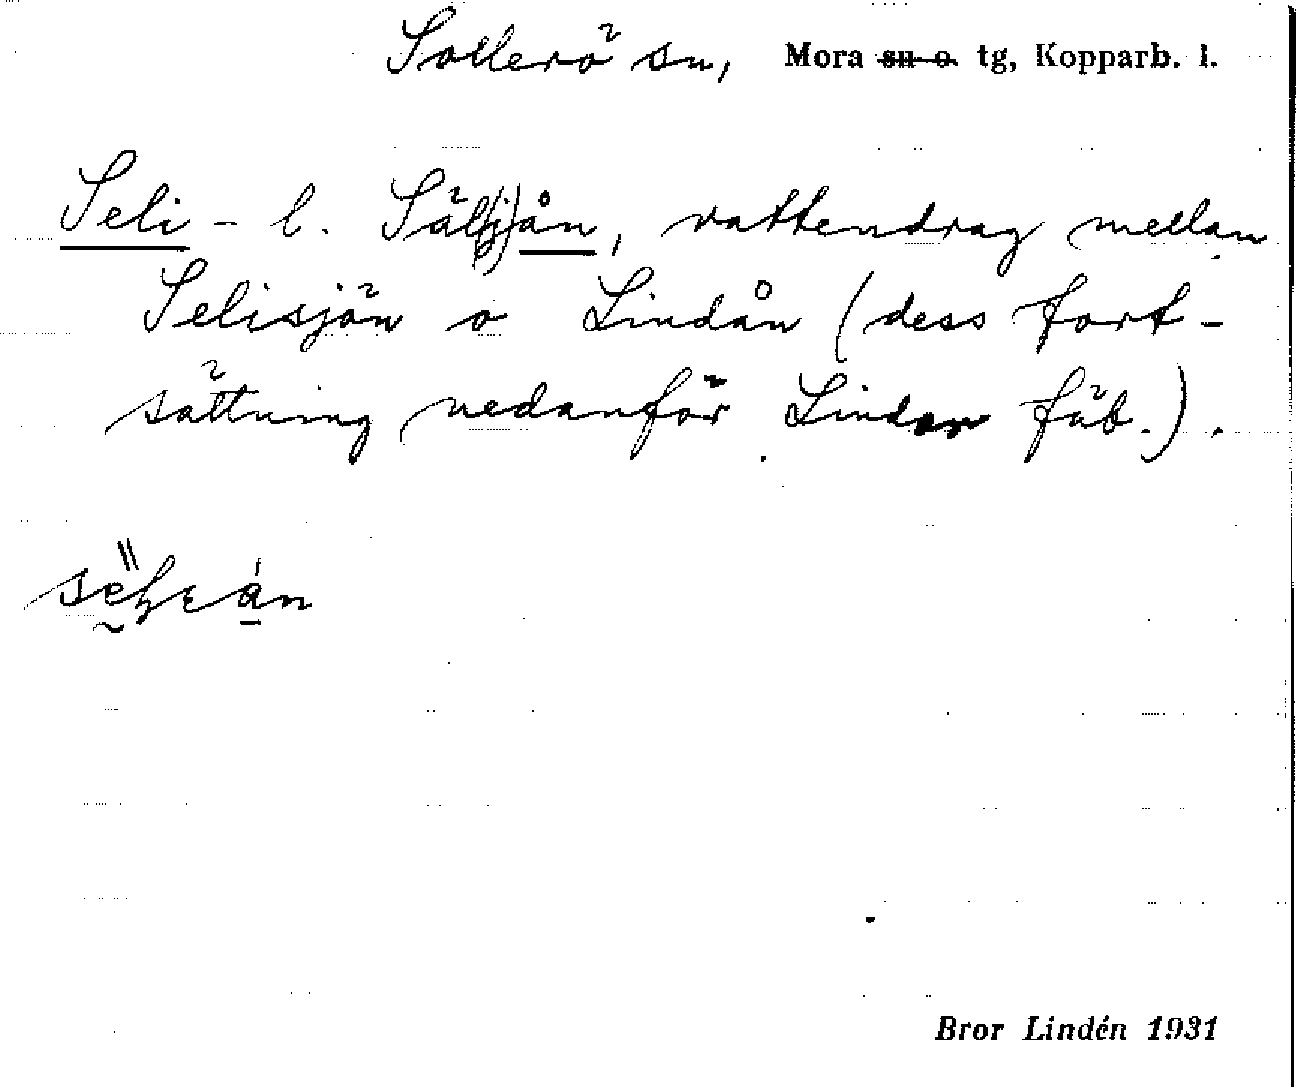 Sollerö sn, Mora sn o. tg, Kopparb. l.
Seli- l. Säl(j)ån, vattendrag mellan
Selisjön o Lindån (dess fort-
sättning nedanför Lindor fäb.).
Bror Lindén 1931